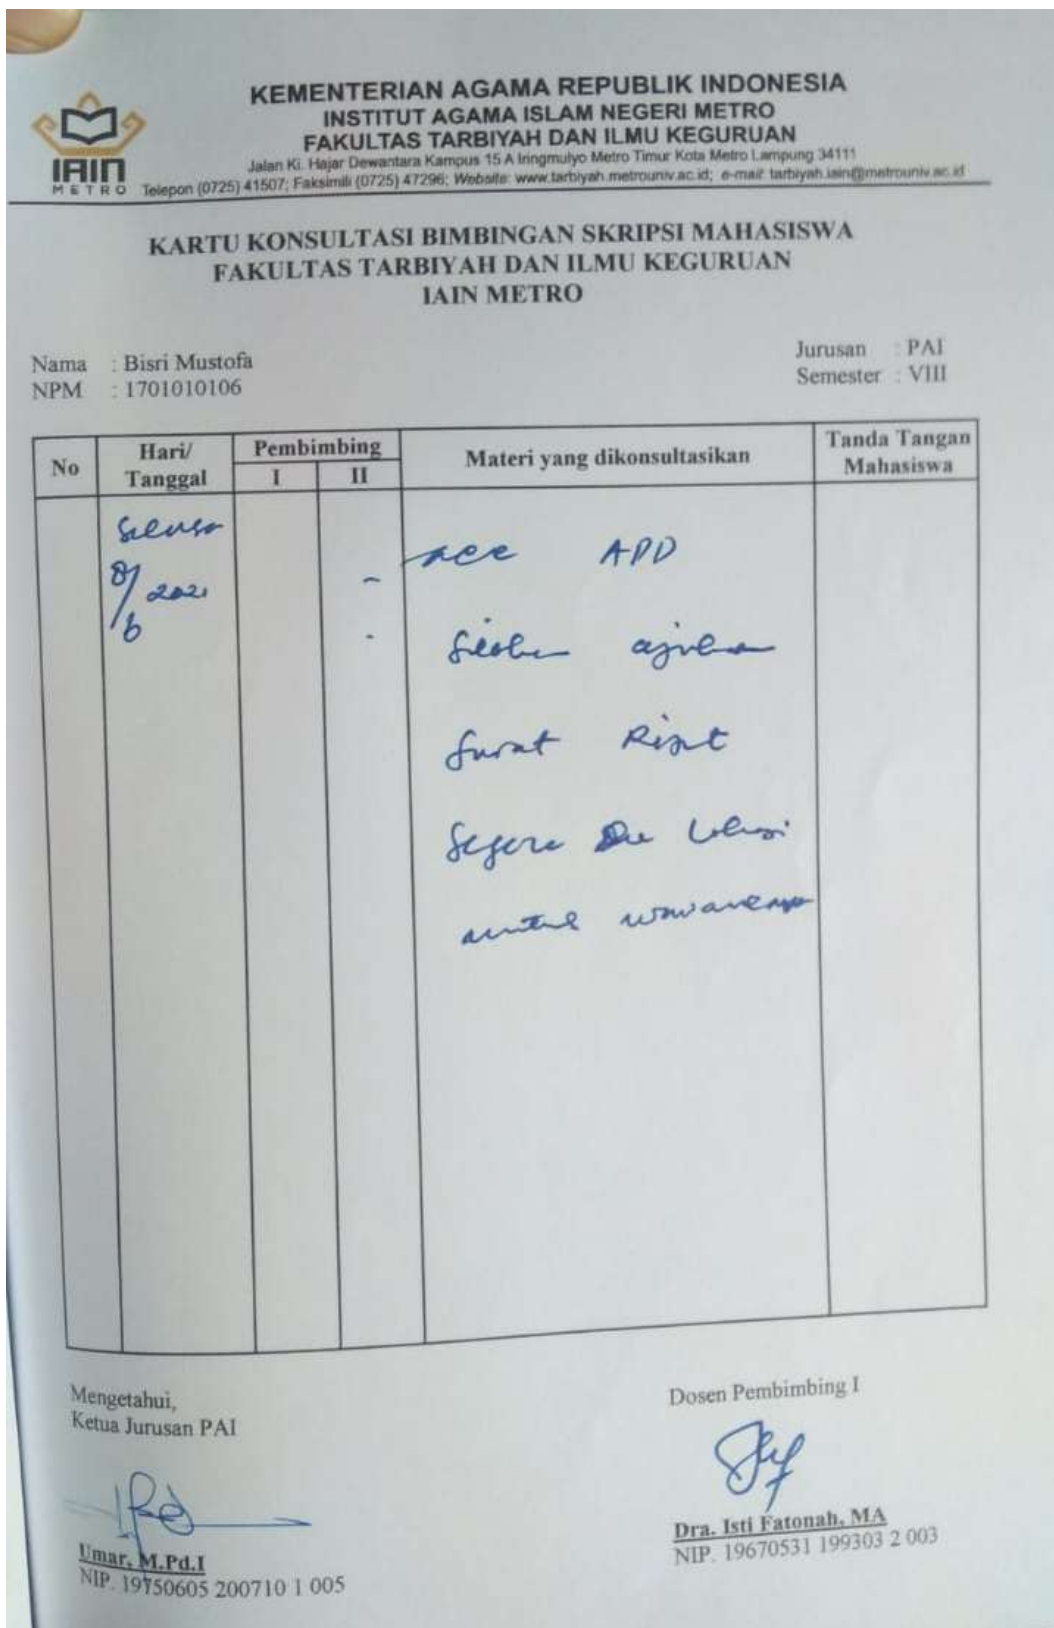 KEMENTERIAN AGAMA REPUBLIK INDONESIA
INSTITUT AGAMA ISLAM NEGERI METRO
FAKULTAS TARBIYAH DAN ILMU KEGURUAN
Jalan Ki. Hajar Dewantara Kampus 15 A Iringmulyo Metro Timur Kota Metro Lampung 34111
Telepon (0725) 41507; Faksimili (0725) 47296; Website: www.tarbiyah.metrouniv.ac.id; e-mail: tarbiyah.iain@metrouniv.ac.id
IAIN
METRO
KARTU KONSULTASI BIMBINGAN SKRIPSI MAHASISWA
FAKULTAS TARBIYAH DAN ILMU KEGURUAN
IAIN METRO
Nama : Bisri Mustofa
NPM : 1701010106
Jurusan : PAI
Semester : VIII
No
Hari/
Tanggal
Pembimbing
I II
Materi yang dikonsultasikan
Tanda Tangan
Mahasiswa
Selasa
8/6 2021
- acc APD
- ajukan
Surat Riset
Segera
untuk wawancara
Mengetahui,
Ketua Jurusan PAI
Umar, M.Pd.I
NIP. 19750605 200710 1 005
Dosen Pembimbing I
Dra. Isti Fatonah, MA
NIP. 19670531 199303 2 003